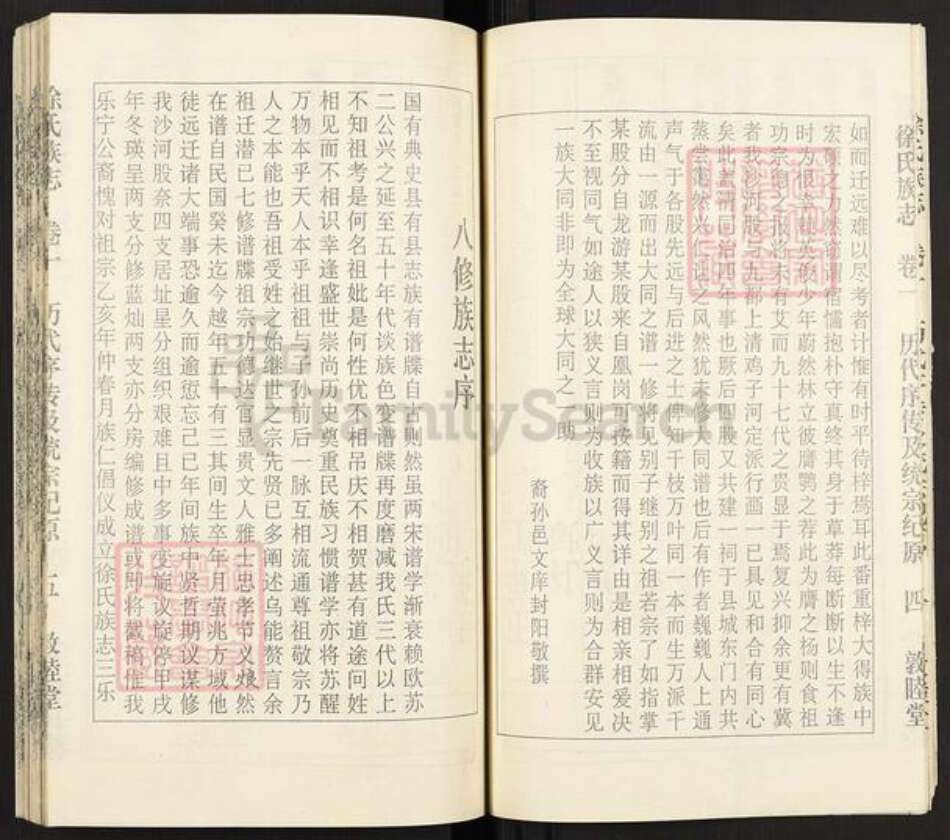 徐氏族志 卷一 历代序传及统宗纪原 四 敦睦堂
如而迁远难以尽考者计惟有时平待梓焉耳此番重梓大得族中
宏
之力然窃谓宿儒抱朴守真终其身于草莽每断断以生不逢
时为恨
英俊少年蔚然林立彼膺鹗之荐此为膺之杨则食祖
功宗
之报将未有艾而九十七代之贵显于焉复兴抑余更有冀
者我沙河股与九都上清鸡子河定派行画一已具见和合有同心
矣此
清同治四年事也厥后四股又共建一祠于县城东门内共
蒸尝
然兴仁让之风然犹未修大同谱也后有作者巍巍人上通
声气于各股先远与后进之士俾知千枝万叶同一本而生万派千
流由一源而出大同之谱一修将见别子继别之祖若宗了如指掌
某股分自龙游某股来自凰岗可按籍而得其详由是相亲相爱决
不至视同气如途人以狭义言则为收族以广义言则为合群安见
一族大同非即为全球大同之一助
裔孙邑文庠封阳敬撰
八修族志序
国有典史县有县志族有谱牒自古则然虽两宋谱学渐衰赖欧苏
二公兴之延至五十年代谈族色变谱牒再度磨减我氏三代以上
不知祖考是何名祖妣是何性优不相吊庆不相贺甚有道途问姓
相见而不相识幸逢盛世崇尚历史奠重民族习惯谱学亦将苏醒
万物本乎天人本乎祖祖与子孙前后一脉互相流通尊祖敬宗乃
人之本能也吾祖受姓之始继世之宗先贤已多阐述乌能赘言余
祖迁潜已七修谱牒祖宗功德达官显贵文人雅士忠孝节义烺然
在谱自民国癸未迄今越年五十有三其间生卒年月茔兆方域他
徒远迁诸大端事恐逾久而逾愆忘己巳年间族中贤哲期议谋修
我沙河股奈四支居址星分组织艰难且中多事变旋议旋停甲戌
年冬瑛呈两支分修蓝灿两支亦分房编修成谱或即将戳稿惟我
乐宁公裔愧对祖宗乙亥年仲春月族仁倡仪成立徐氏族志三乐
徐氏族志 卷一 历代序传及统宗纪原 五 敦睦堂
FamilySearch